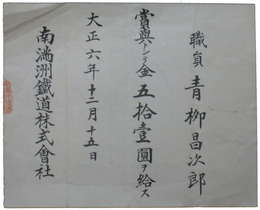 職員 青柳昌次郎
賞與トシテ金五拾壹圓ヲ給ス
大正六年十二月十五日
南満洲鐵道株式會社